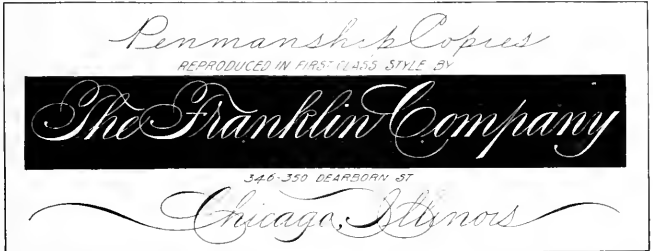 Penmanship Copies
REPRODUCED IN FIRST CLASS STYLE BY
The Franklin Company
346-350 DEARBORN ST
Chicago, Illinois